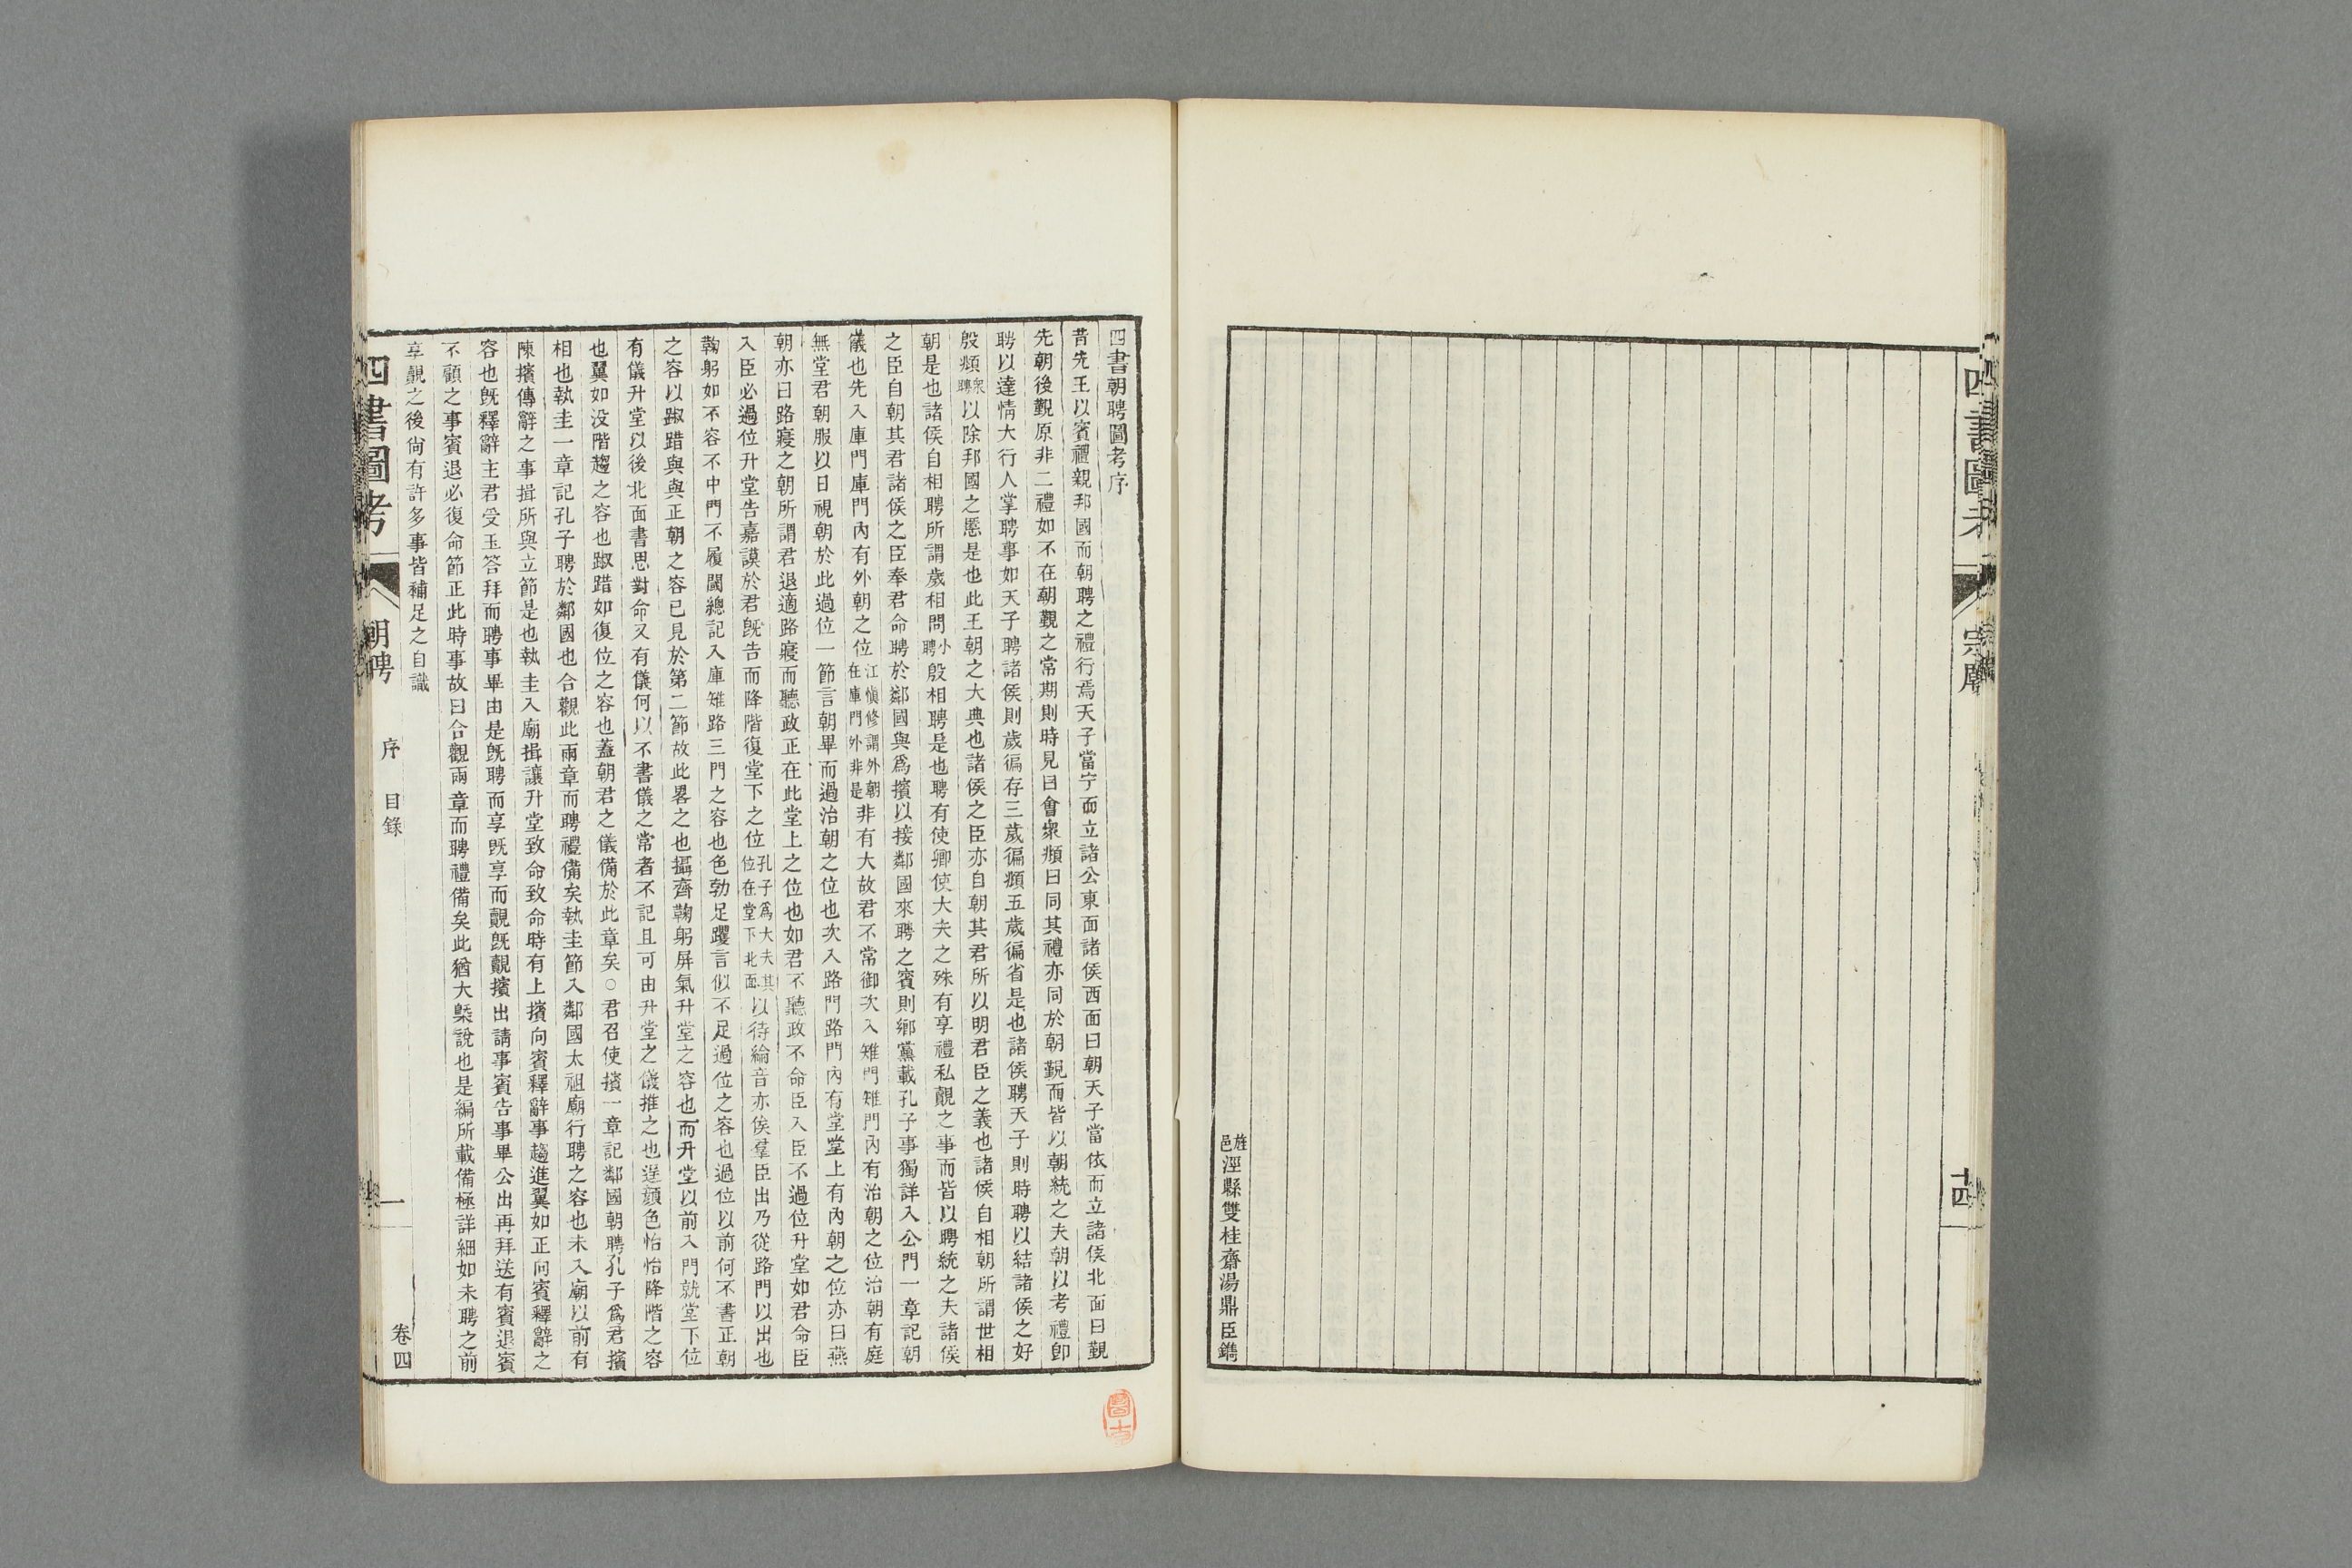 四書圖考
宗廟
十四
旌邑涇縣雙桂齋湯鼎臣鐫
四書朝聘圖考序
昔先王以賓禮親邦國而朝聘之禮行焉天子當宁而立諸公東面諸侯西面曰朝天子當依而立諸侯北面曰覲
先朝後覲原非二禮如不在朝覲之常期則時見曰會衆頫曰同其禮亦同於朝覲而皆以朝統之夫朝以考禮卽
聘以達情大行人掌聘事如天子聘諸侯則歲徧存三歲徧頫五歲徧省是也諸侯聘天子則時聘以結諸侯之好
殷頫衆聘以除邦國之慝是也此王朝之大典也諸侯之臣亦自朝其君所以明君臣之義也諸侯自相朝所謂世相
朝是也諸侯自相聘所謂歲相問小聘殷相聘是也聘有使卿使大夫之殊有享禮私覿之事而皆以聘統之夫諸侯
之臣自朝其君諸侯之臣奉君命聘於鄰國與爲擯以接鄰國來聘之賓則鄉黨載孔子事獨詳入公門一章記朝
儀也先入庫門庫門內有外朝之位江愼修謂外朝在庫門外非是非有大故君不常御次入雉門雉門內有治朝之位治朝有庭
無堂君朝服以日視朝於此過位一節言朝畢而過治朝之位也次入路門路門內有堂堂上有內朝之位亦曰燕
朝亦曰路寢之朝所謂君退適路寢而聽政正在此堂上之位也如君不聽政不命臣入臣不過位升堂如君命臣
入臣必過位升堂告嘉謨於君旣告而降階復堂下之位孔子爲大夫其位在堂下北面以待綸音亦俟羣臣出乃從路門以出也
鞠躬如不容不中門不履閾總記入庫雉路三門之容也色勃足躩言似不足過位之容也過位以前何不書正朝
之容以踧踖與與正朝之容已見於第二節故此畧之也攝齊鞠躬屏氣升堂之容也而升堂以前入門就堂下位
有儀升堂以後北面書思對命又有儀何以不書儀之常者不記且可由升堂之儀推之也逞顔色怡怡降階之容
也翼如没階趨之容也踧踖如復位之容也蓋朝君之儀備於此章矣○君召使擯一章記鄰國朝聘孔子爲君擯
相也執圭一章記孔子聘於鄰國也合觀此兩章而聘禮備矣執圭節入鄰國太祖廟行聘之容也未入廟以前有
陳擯傳辭之事揖所與立節是也執圭入廟揖讓升堂致命致命時有上擯向賓釋辭事趨進翼如正向賓釋辭之
容也旣釋辭主君受玉答拜而聘事畢由是旣聘而享旣享而覿旣覿擯出請事賓告事畢公出再拜送有賓退賓
不顧之事賓退必復命節正此時事故曰合觀兩章而聘禮備矣此猶大槩說也是編所載備極詳細如未聘之前
享覿之後尙有許多事皆補足之自識
四書圖考
朝聘
序 目錄
一
卷四